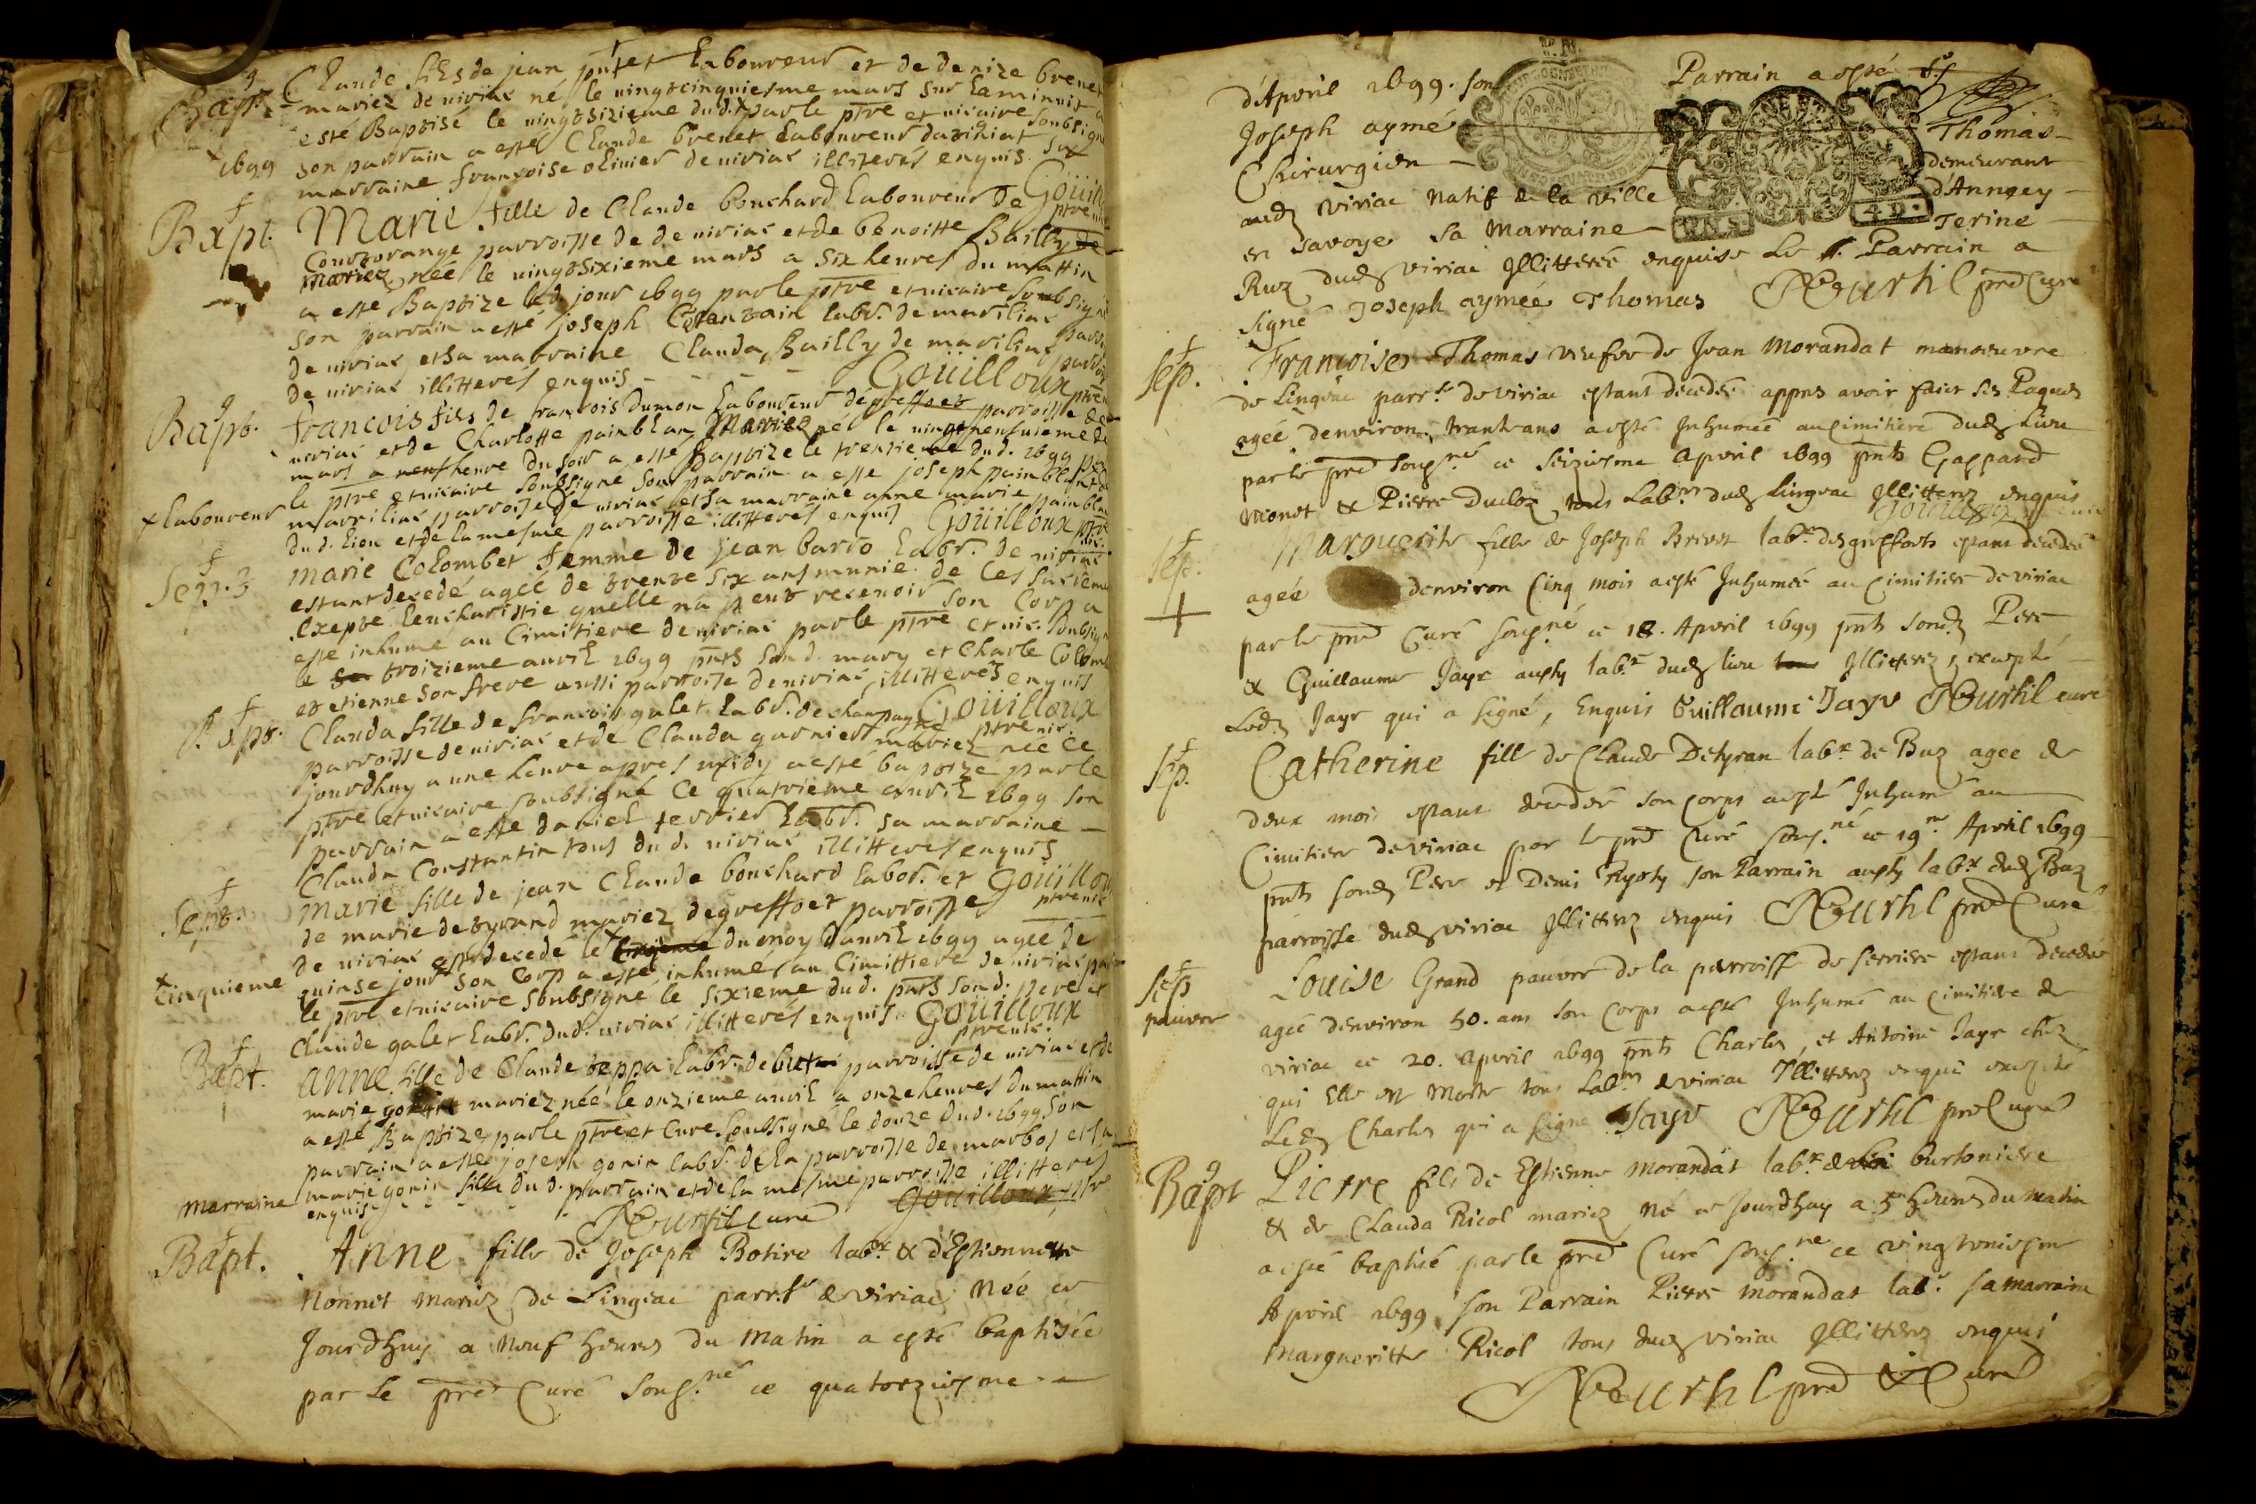 Bapt. Claude fils de jean putet Laboureur et de denize brenet
mariez de viriac né le vingtcinquiesme mars sur la minuit a
esté Baptisé le vingtsizieme dud. par le ptre et vicaire soubsigné
1699 son parrain a esté Claude brenet Laboureur sa
marraine francoise olinier de viriac illiterés enquis
Bapt. Marie fille de Claude bouchard Laboureur de Goüilloux
parroisse de de viriac et de benoitte Bailly de
mariez née le vingtsixieme mars a six heures du mattin
a esté Baptize led jour 1699 par le ptre et vicaire soubsigné
son parrain a esté joseph labr. de marilias
de viriac et sa marraine Clauda Bailly de marilias
de viriac illitterés enquis - - - - Goüilloux
Bapt. francois fils de francois dumon Laboureur parroisse de
viriac et de Charlotte painblan mariez né le
mars a neuf heure du soir a esté baptize le trentieme dud. 1699
x Laboureur le ptre et vicaire soubsigné son parrain a esté joseph painblan x
marilias parroisse de viriac et sa marraine anne marie painblan
dud. lieu et de la mesme parroisse illitterés enquis Goüilloux ptre
Sep. 3 marie Colombet femme de jean bardo labr. de viriac
estant decedé ageé de trente six ans munie de ces sacremens
Exepté leucharistie quelle na peut recevoir son Corp a
esté inhumé au Cimitiere de viriac par le ptre et vic. soubsigné
le troizieme avril 1699 pnts son d. mary et Charle Colombet
et etienne son frere aussi parroisse de viriac illitterés enquis
Bapt. Clauda fille de francois galet Labr. de Goüilloux
parroisse de viriac et de Clauda garnier mariez née ce ptre vic.
jourdhuy a une heure apres midy a esté baptizé par le
ptre et vicaire soubsigné ce quatrieme avril 1699 son
parrain a esté daniel terrier Labr. sa marraine -
Clauda Constantin tous dud. viriac illitterés enquis
Sep. marie fille de jean Claude bouchard labor. et Goüilloux
de marie de tyrand mariez parroisse ptre vic
de viriac decedé le x du moy davril 1699 ageé de
x cinquieme quinse jour son Corp a esté inhumé au Cimittiere de viriac par
le ptre et vicaire soubsigné le sixieme dud. pnts son d. pere et
Claude galet Labr. dud. viriac illitterés enquis. Goüilloux
Bapt. anne fille de Claude Labr. parroisse de viriac et de
marie gonin mariez née le onzieme avril a onze heures du mattin
a esté Baptize par le ptre et Curé soubsigné le douze dud. 1699 son
parrain a esté joseph gonin labr. de la parroisse de marbos et sa
marraine marie gonin fille du d. parrain et de la mesme parroisse illitterés
enquis. Curé Goüilloux ptre
Bapt. Anne fille de Joseph Botire labr & d'Estiennette
Monnet mariez de Lingeac parr.se de viriac Née ce
Jourdhuy a Neuf heures du Matin a esté baptisée
par Le pre Curé sous.né ce quatorziesme
d'Apvril 1699. son Parrain a esté Sr
Joseph aymé Thomas
Chirurgien demeurant
aud viriac natif de la ville d'Anneçy
en Savoye sa Marraine Terine
Ruz dud viriac Illitterée enquise Le Sr. Parrain a
signé Joseph aymeé Thomas pre Curé
Sep. Francoise Thomas veufve de Jean Morandat manoeuvre
de Lingeac parr.se de viriac estant decedée appres avoir faict ses Paques
agée denviron trante ans a esté Inhumeé au Cimitiere dud Lieu
par le pre sousné ce seiziesme apvril 1699 pnts Gaspard
Monet & Pierre Ducloz tous Labrs dud Lingeac Illitterez enquis
Sep. Marguerite fille de Joseph Brevet labr des greffets estant decedée
agée denviron Cinq mois a esté Inhumée au Cimitiere de viriac
par le pre Curé sousné ce 18. Apvril 1699 pnts sond Pere
& Guillaume Jayr aussy labr dud lieu Illitterez, excepté
Led Jayr qui a signé, Enquis Guillaume Jayr curé
Sep. Catherine fille de Claude Detyran labr de Buz agee de
deux mois estant decedée son corps a esté Inhumé au
Cimitiere de viriac par le pre Curé sous.né ce 19me Apvril 1699
pnts sond Pere et Denis son Parrain aussy labr dud Buz
parroisse dud viriac Illitterez enquis pre Curé
Sep pauvre Louise Grand pauvre de la parroisse de serriere estant decedée
agée denviron 50. ans son corps a esté Inhumé au Cimitiere de
viriac ce 20. apvril 1699 pnts Charles, et Antoine Jayr chez
qui Elle est Morte tous Labrs de viriac Illitterez enquis excepté
Led Charles qui a signe Jayr pre Curé
Bapt Pierre fils de Estienne Morandat labr burtoniere
& de Clauda Ricol mariez, Né ce jourdhuy a 5 heures du matin
a esté baptisé par le pre Curé sous.né ce vingtuniesme
Apvril 1699 son Parrain Pierre Morandat labr. sa marraine
Margueritte Ricol tous dud viriac Illitterez enquis
pre & Curé